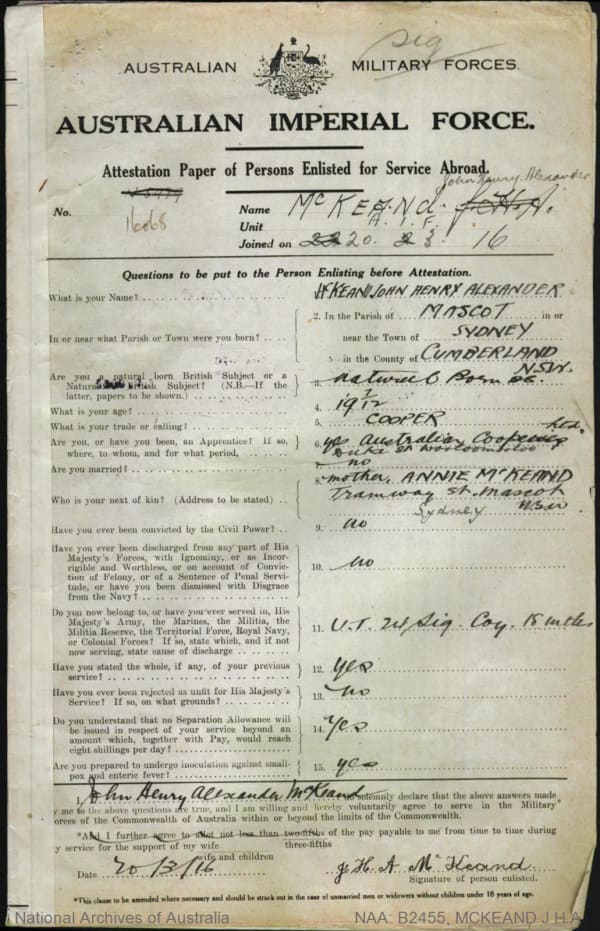 sig
AUSTRALIAN MILITARY FORCES.
AUSTRALIAN IMPERIAL FORCE.
Attestation Paper of Persons Enlisted for Service Abroad.
John Henry Alexander
No. 16068 Name McKEAND. J.H.A.
Unit A.I.F.
Joined on 22 20. 2 3 16
Questions to be put to the Person Enlisting before Attestation.
What is your Name? McKEAND JOHN HENRY ALEXANDER
In or near what Parish or Town were you born? 2. In the Parish of MASCOT in or
near the Town of SYDNEY
in the County of CUMBERLAND
NSW.
Are you a natural born British Subject or a
Naturalized British Subject? (N.B.—If the
latter, papers to be shown.) 3. natural Born BS.
What is your age? 4. 19 1/2
What is your trade or calling? 5. COOPER
Are you, or have you been, an Apprentice? If so,
where, to whom, and for what period, 6. yes Australian Cooperage
Duke St Woolloomooloo
Are you married? no
Who is your next of kin? (Address to be stated) 8. mother. ANNIE McKEAND
Tramway St. Mascot
Sydney NSW
Have you ever been convicted by the Civil Power? 9. no
Have you ever been discharged from any part of His
Majesty's Forces, with Ignominy, or as Incor-
rigible and Worthless, or on account of Convic-
tion of Felony, or of a Sentence of Penal Servi-
tude, or have you been dismissed with Disgrace
from the Navy? 10. no
Do you now belong to, or have you ever served in, His
Majesty's Army, the Marines, the Militia, the
Militia Reserve, the Territorial Force, Royal Navy,
or Colonial Forces? If so, state which, and if not
now serving, state cause of discharge 11. U.T. 24 Sig. Coy. 18 mths
Have you stated the whole, if any, of your previous
service? 12. yes
Have you ever been rejected as unfit for His Majesty's
Service? If so, on what grounds? 13. no
Do you understand that no Separation Allowance will
be issued in respect of your service beyond an
amount which, together with Pay, would reach
eight shillings per day? 14. yes
Are you prepared to undergo inoculation against small-
pox and enteric fever? 15. yes
I, John Henry Alexander McKeand solemnly declare that the above answers made
y me to the above questions are true, and I am willing and hereby voluntarily agree to serve in the Military
orces of the Commonwealth of Australia within or beyond the limits of the Commonwealth.
*And I further agree to allot not less than two-fifths of the pay payable to me from time to time during
three-fifths
y service for the support of my wife
wife and children
Date 20/3/16 J. H. A. McKeand.
Signature of person enlisted.
*This clause to be amended where necessary and should be struck out in the case of unmarried men or widowers without children under 18 years of age.
National Archives of Australia NAA: B2455, MCKEAND J H A